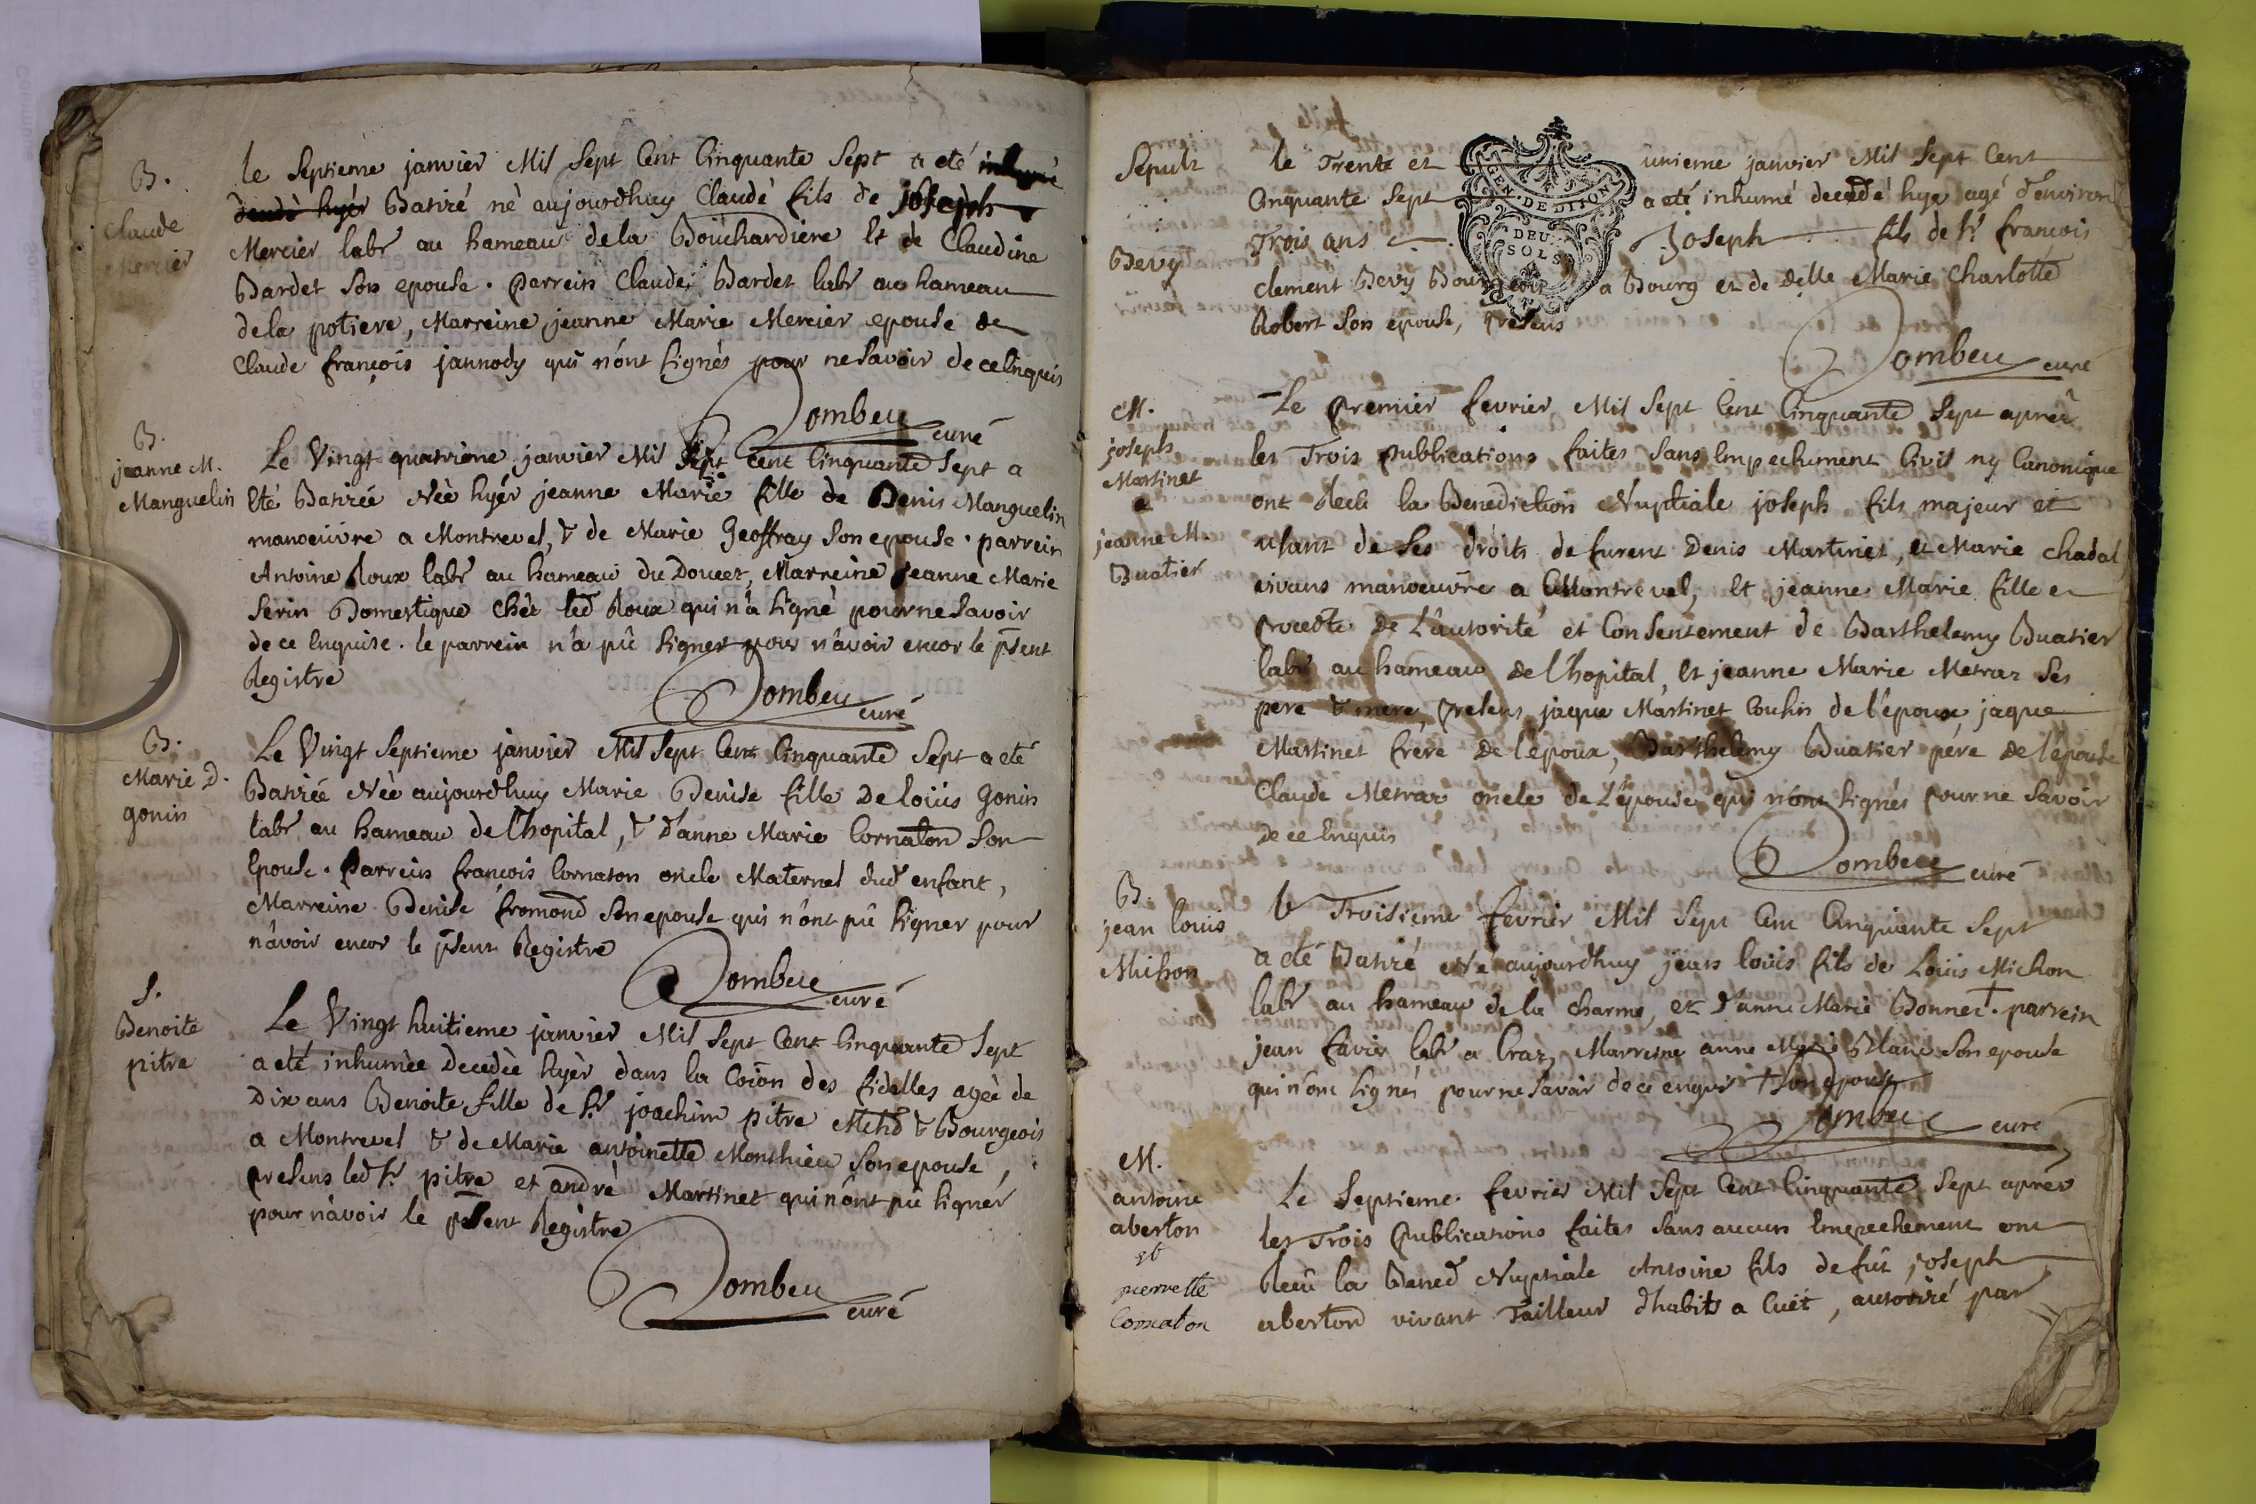 B.
Claude
Mercier
le Septieme janvier Mil Sept Cent Cinquante Sept a eté inhumé
decedé hyér Batizé né aujourdhuy Claude fils de joseph
Mercier labr au hameau dela Bouchardiere Et de Claudine
Bardet Son epouse . parrein Claude Bardet labr au hameau
dela potiere, Marreine jeanne Marie Mercier epouse de
Claude françois jannody qui n'ont Signés pour ne Savoir de ce Enquis
Dombeu curé
B.
jeanne M.
Manguelin
Le Vingt quatrieme janvier Mil Sept Cent Cinquante Sept a
Eté Batizée Née hyér jeanne Marie fille de Denis Manguelin
manoeuvre a Montrevel, & de Marie Geoffray Son epouse . parrein
Antoine Roux labr au hameau du Doucet, Marreine jeanne Marie
Serin Domestique chés led Roux qui n'a Signé pour ne Savoir
de ce Enquise . le parrein n'a pû Signer pour n'avoir encor le pSent
Registre
Dombeu curé
B.
Marie D.
gonin
Le Vingt Septieme janvier Mil Sept Cent Cinquante Sept a eté
Batizée Née aujourdhuy Marie Denise fille De loüis gonin
labr au hameau de l'hopital, & d'anne Marie Cornaton Son
Epouse . Parrein françois Cornaton oncle Maternel dud enfant,
Marreine Denise fromond Son epouse qui n'ont pû Signer pour
n'avoir encor le pSent Registre
Dombeu curé
S.
Benoite
pitre
Le Vingt huitieme janvier Mil Sept Cent Cinquante Sept
a eté inhumée Decedée hyér dans la Coïon des fidelles ageé de
Dix ans Benoite fille de Sr joachim pitre Mchd & Bourgeois
a Montrevel & de Marie antoinette Monthieu Son epouse,
presens led Sr pitre et andré Martinet qui n'ont pû Signér
pour n'avoir le pSent Registre
Dombeu curé
Sepult
Bevy
le Trente et unieme janvier Mil Sept Cent
Cinquante Sept a eté inhumé decedé hyer agé d'environ
Trois ans joseph fils de Sr françois
clement Bevy Bourgeois a Bourg et de Delle Marie Charlotte
Robert Son epouse, presens
GEN. DE DIJON
DEUX
SOLS
Dombeu curé
M.
joseph
Martinet
&
jeanne M.
Buatier
Le Premier fevrier Mil Sept Cent Cinquante Sept aprés
les Trois publications faites Sans Empechement Civil ny Canonique
ont Receu la Benediction Nuptiale joseph fils majeur et
usant de Ses droits de furent Denis Martinet, et Marie chadal
vivans manoeuvre a Montrevel, Et jeanne Marie fille en
procedte De L'autorité et Consentement de Barthelemy Buatier
labr au hameau de l'hopital, Et jeanne Marie Metraz Ses
pere & mere, presens jaque Martinet Cousin de l'époux jaque
Martinet frere de l'époux, Barthelemy Buatier pére de l'épouse
Claude Metraz oncle de L'épouse qui n'ont Signés pour ne Savoir
de ce Enquis
Dombeu curé
B.
jean louis
Michon
le Troisieme fevrier Mil Sept Cent Cinquante Sept
a eté Batizé Né aujourdhuy jean loüis fils de Loüis Michon
labr au hameau de la charme, et d'anne Marie Bonnet † . parrein
jean favier labr a Craz, Marreine anne Marie Blanc Son epouse
qui n'ont Signés pour ne Savoir de ce enquis † Son epouse
Dombeu curé
M.
antoine
aberton
et
pierrette
Cornaton
Le Septieme fevrier Mil Sept Cent Cinquante Sept aprés
les Trois Publications faites Sans aucun Empechement ont
Receu la Bened Nuptiale Antoine fils de fût joseph
aberton vivant Tailleur d'habits a Cuét, autorizé par